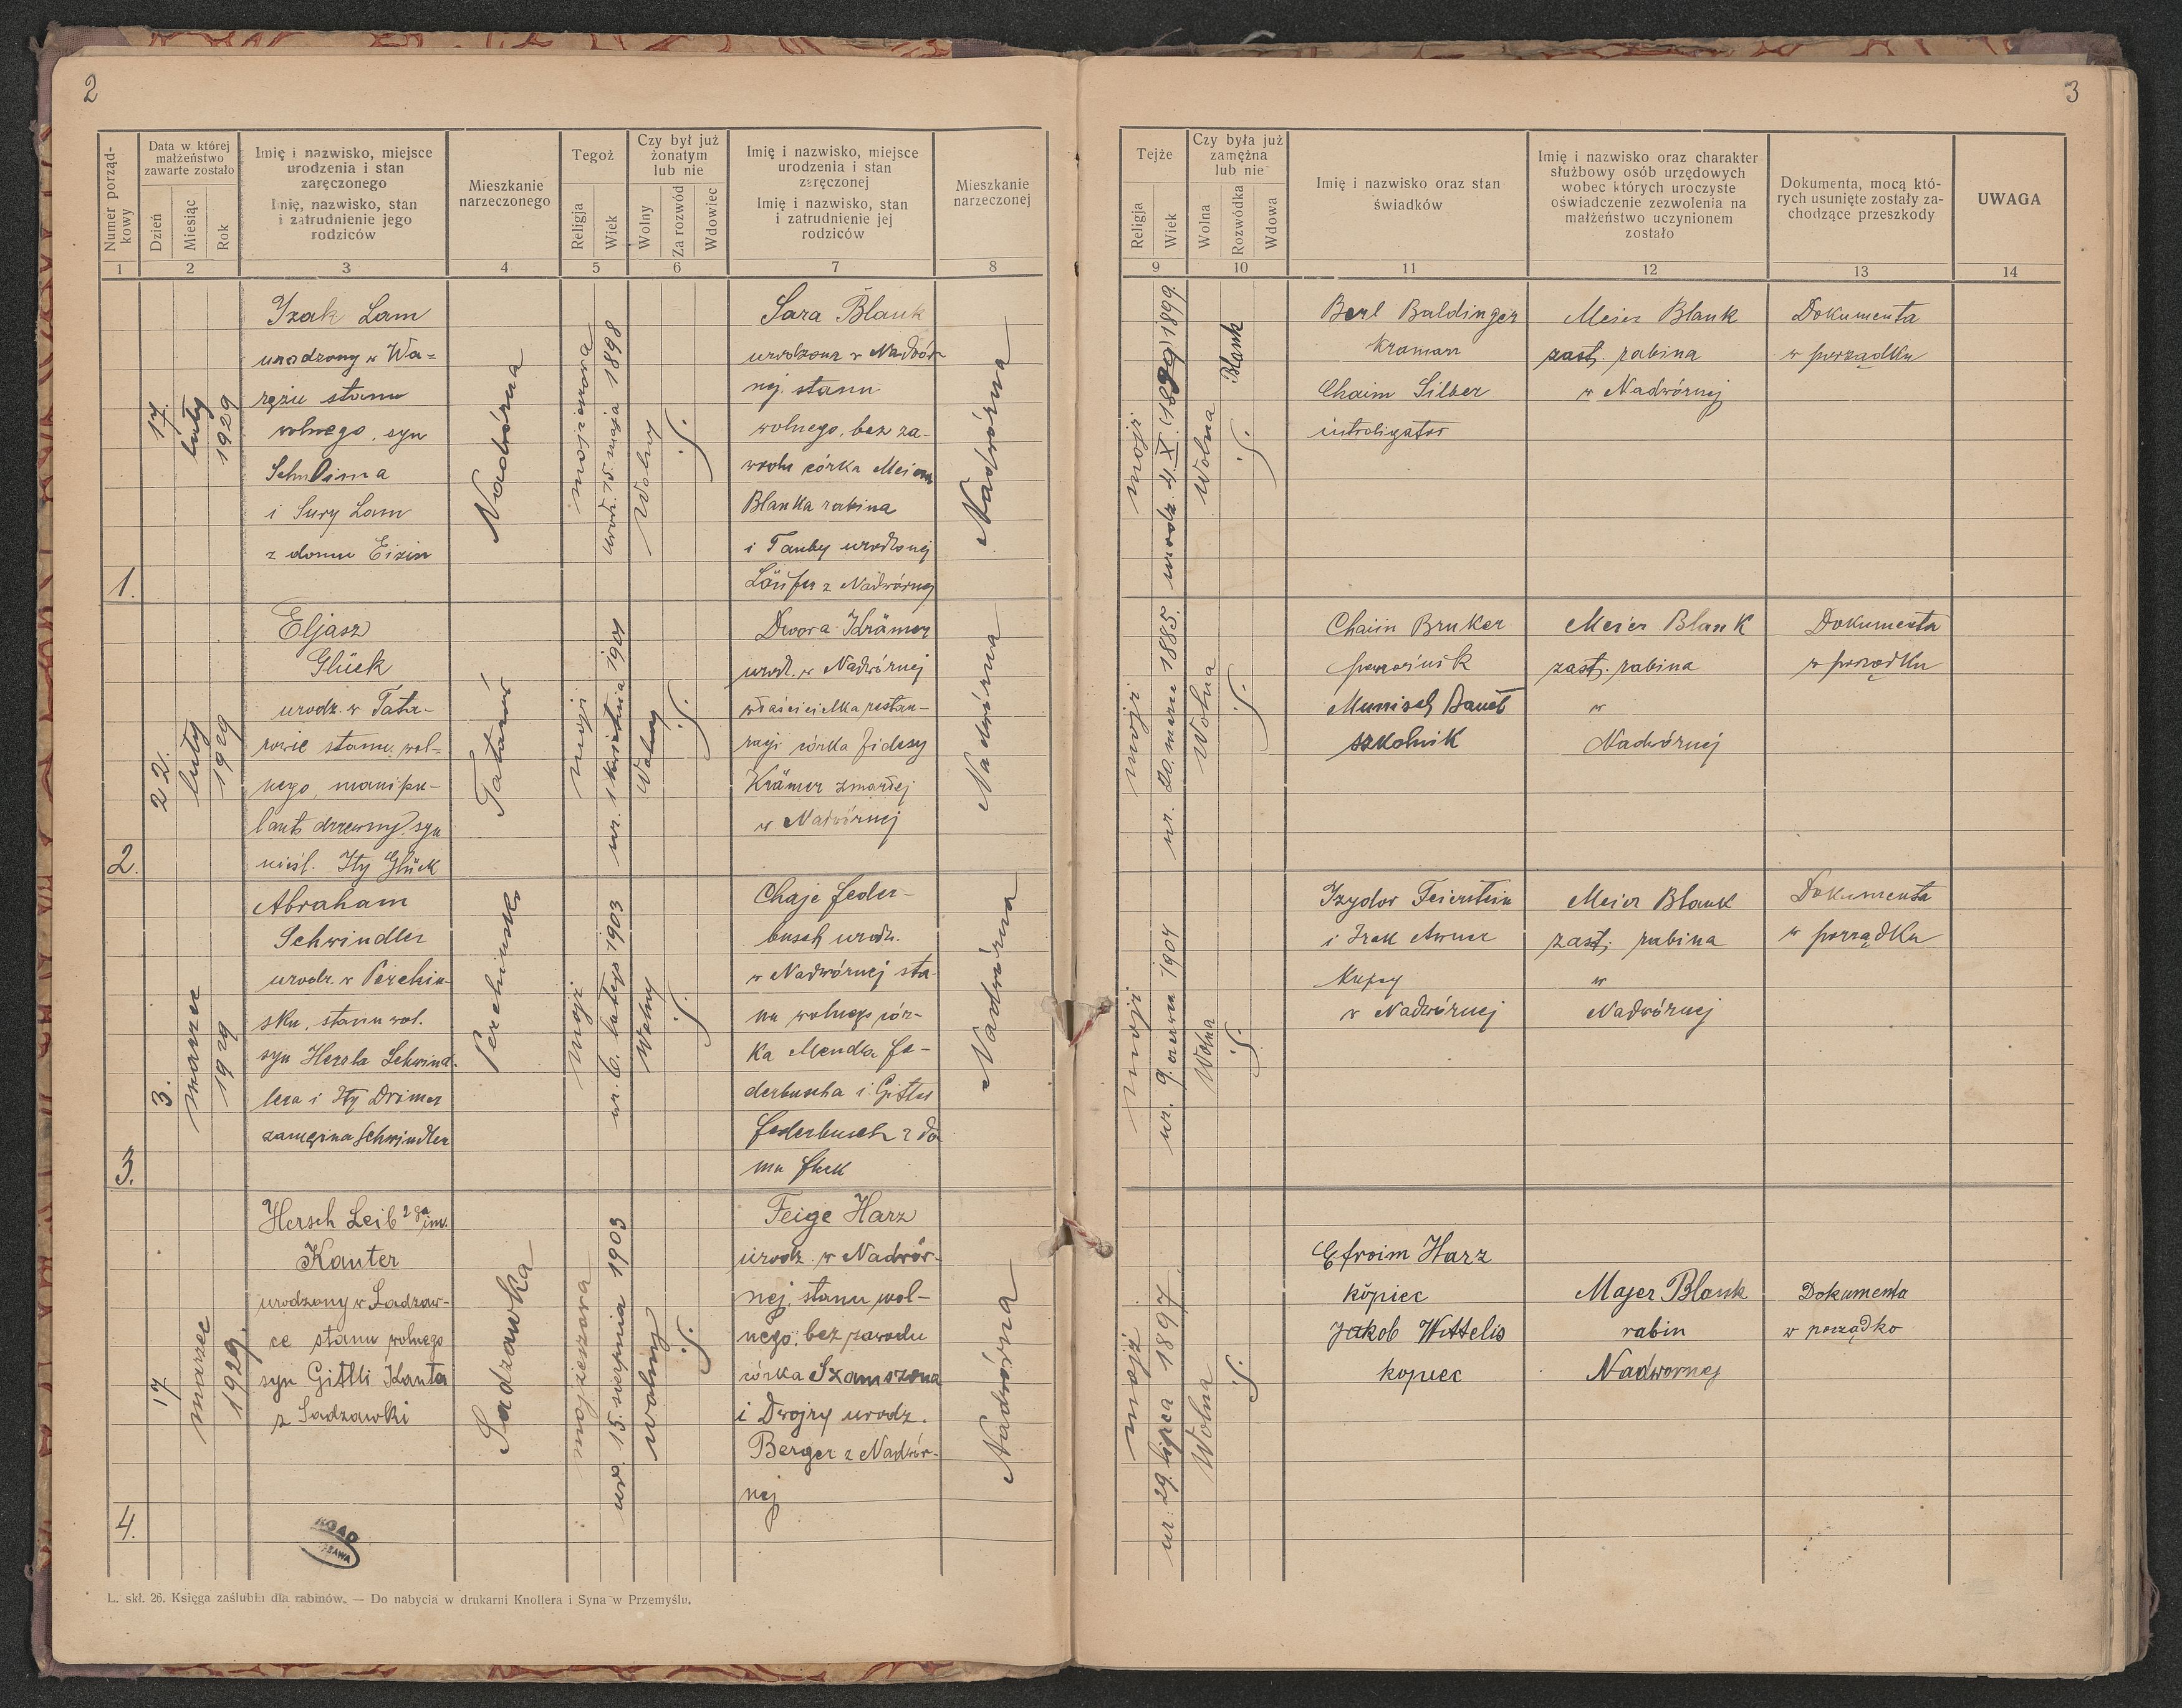 2
3
Numer porząd-
kowy
Data w której
małżeństwo
zawarte zostało
Dzień
Miesiąc
Rok
Imię i nazwisko, miejsce
urodzenia i stan
zaręczonego
Imię, nazwisko, stan
i zatrudnienie jego
rodziców
Mieszkanie
narzeczonego
Tegoż
Religja
Wiek
Czy był już
żonatym
lub nie
Wolny
Za rozwód
Wdowiec
Imię i nazwisko, miejsce
urodzenia i stan
zaręczonej
Imię i nazwisko, stan
i zatrudnienie jej
rodziców
Mieszkanie
narzeczonej
Tejże
Religja
Wiek
Czy była już
zamężna
lub nie
Wolna
Rozwódka
Wdowa
Imię i nazwisko oraz stan
świadków
Imię i nazwisko oraz charakter
służbowy osób urzędowych
wobec których uroczyste
oświadczenie zezwolenia na
małżeństwo uczynionem
zostało
Dokumenta, mocą któ-
rych usunięte zostały za-
chodzące przeszkody
UWAGA
1 2 3 4 5 6 7 8 9 10 11 12 13 14
1.
17.
luty
1929
Izak Lam
urodzony w Wa-
rężu stanu
wolnego, syn
Schulima
i Sury Lam
z domu Eizin
Nadwórna
mojżeszowa
urodz. 15. maja 1898
Wolny
Sara Blank
urodzona w Nadwór
nej, stanu
wolnego, bez za-
wodu córka Meiera
Blanka rabina
i Tauby urodzonej
Läufer z Nadwórnej
Nadwórna
mojż.
urodz. 4. X. 1899.
Wolna
Blank
Berl Baldinger
kramarz
Chaim Silber
introligator
Meier Blank
zast. rabina
w Nadwórnej
Dokumenta
w porządku
2.
22.
luty
1929
Eljasz
Glück
urodz. w Tata-
rowie stanu wol-
nego, manipu-
lant drzewny, syn
nieśl. Ity Glück
Tatarów
mojż.
ur. 1 kwietnia 1901
Wolny
Dwora Krämer
urodz. w Nadwórnej
właścicielka restau-
racji córka Fidesy
Krämer zmarłej
w Nadwórnej
Nadwórna
mojż.
ur. 20. marca 1885.
Wolna
Chaim Bruker
Munisch
szkolnik
Meier Blank
zast. rabina
w
Nadwórnej
Dokumenta
w porządku
3.
3.
marzec
1929
Abraham
Schwindler
urodz. w Perehiń-
sku, stanu wol.
syn Hersla Schwind-
lera i Ity Drimer
zamężna Schwindler
Perehińsko
mojż
ur. 6. lutego 1903
Wolny
Chaje Feder-
busch urodz.
w Nadwórnej sta-
nu wolnego cór-
ka Mendla Fe-
derbuscha i Gittli
Federbusch z do
mu
Nadwórna
mojż
ur. 9. czerwca 1904
Wolna
Izydor Feierstein
i Izak Awner
kupcy
w Nadwórnej
Meier Blank
zast. rabina
w
Nadwórnej
Dokumenta
w porządku
4.
17
marzec
1929.
Hersch Leib 2ga im.
Kanter
urodzony w Sadzaw-
ce stanu wolnego
syn Gittli Kanter
z Sadzawki
Sadzawka
mojżeszowa
ur. 15. sierpnia 1903
wolny
Feige Harz
urodz. w Nadwór-
nej, stanu wol-
nego, bez zawodu
córka Szamszona
i Dwojry urodz.
Berger z Nadwór-
nej
Nadwórna
mojż
ur. 29. lipca 1897.
Wolna
Efroim Harz
kópiec
Jakob Wittelis
kopiec
Majer Blank
rabin
Nadwornej
Dokumenta
w porządko
AGAD
L. skł. 26. Księga zaślubin dla rabinów. — Do nabycia w drukarni Knollera i Syna w Przemyślu.